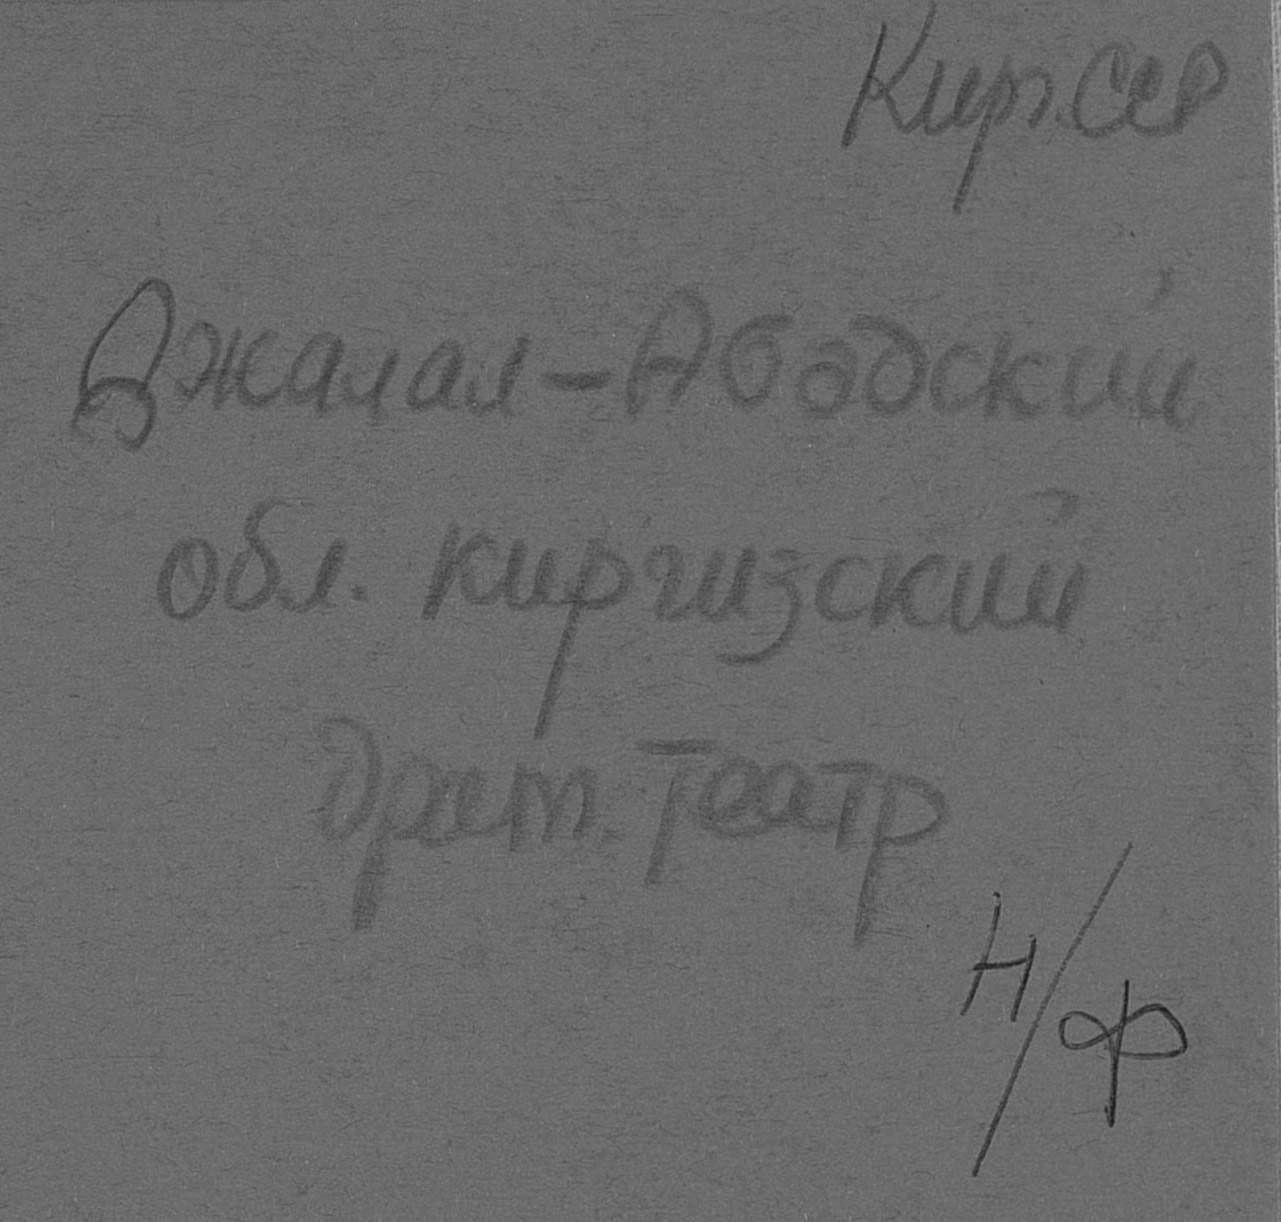 Кирг.ССР
Джалал-Абадский
обл. киргизский
драм. театр
н/ф